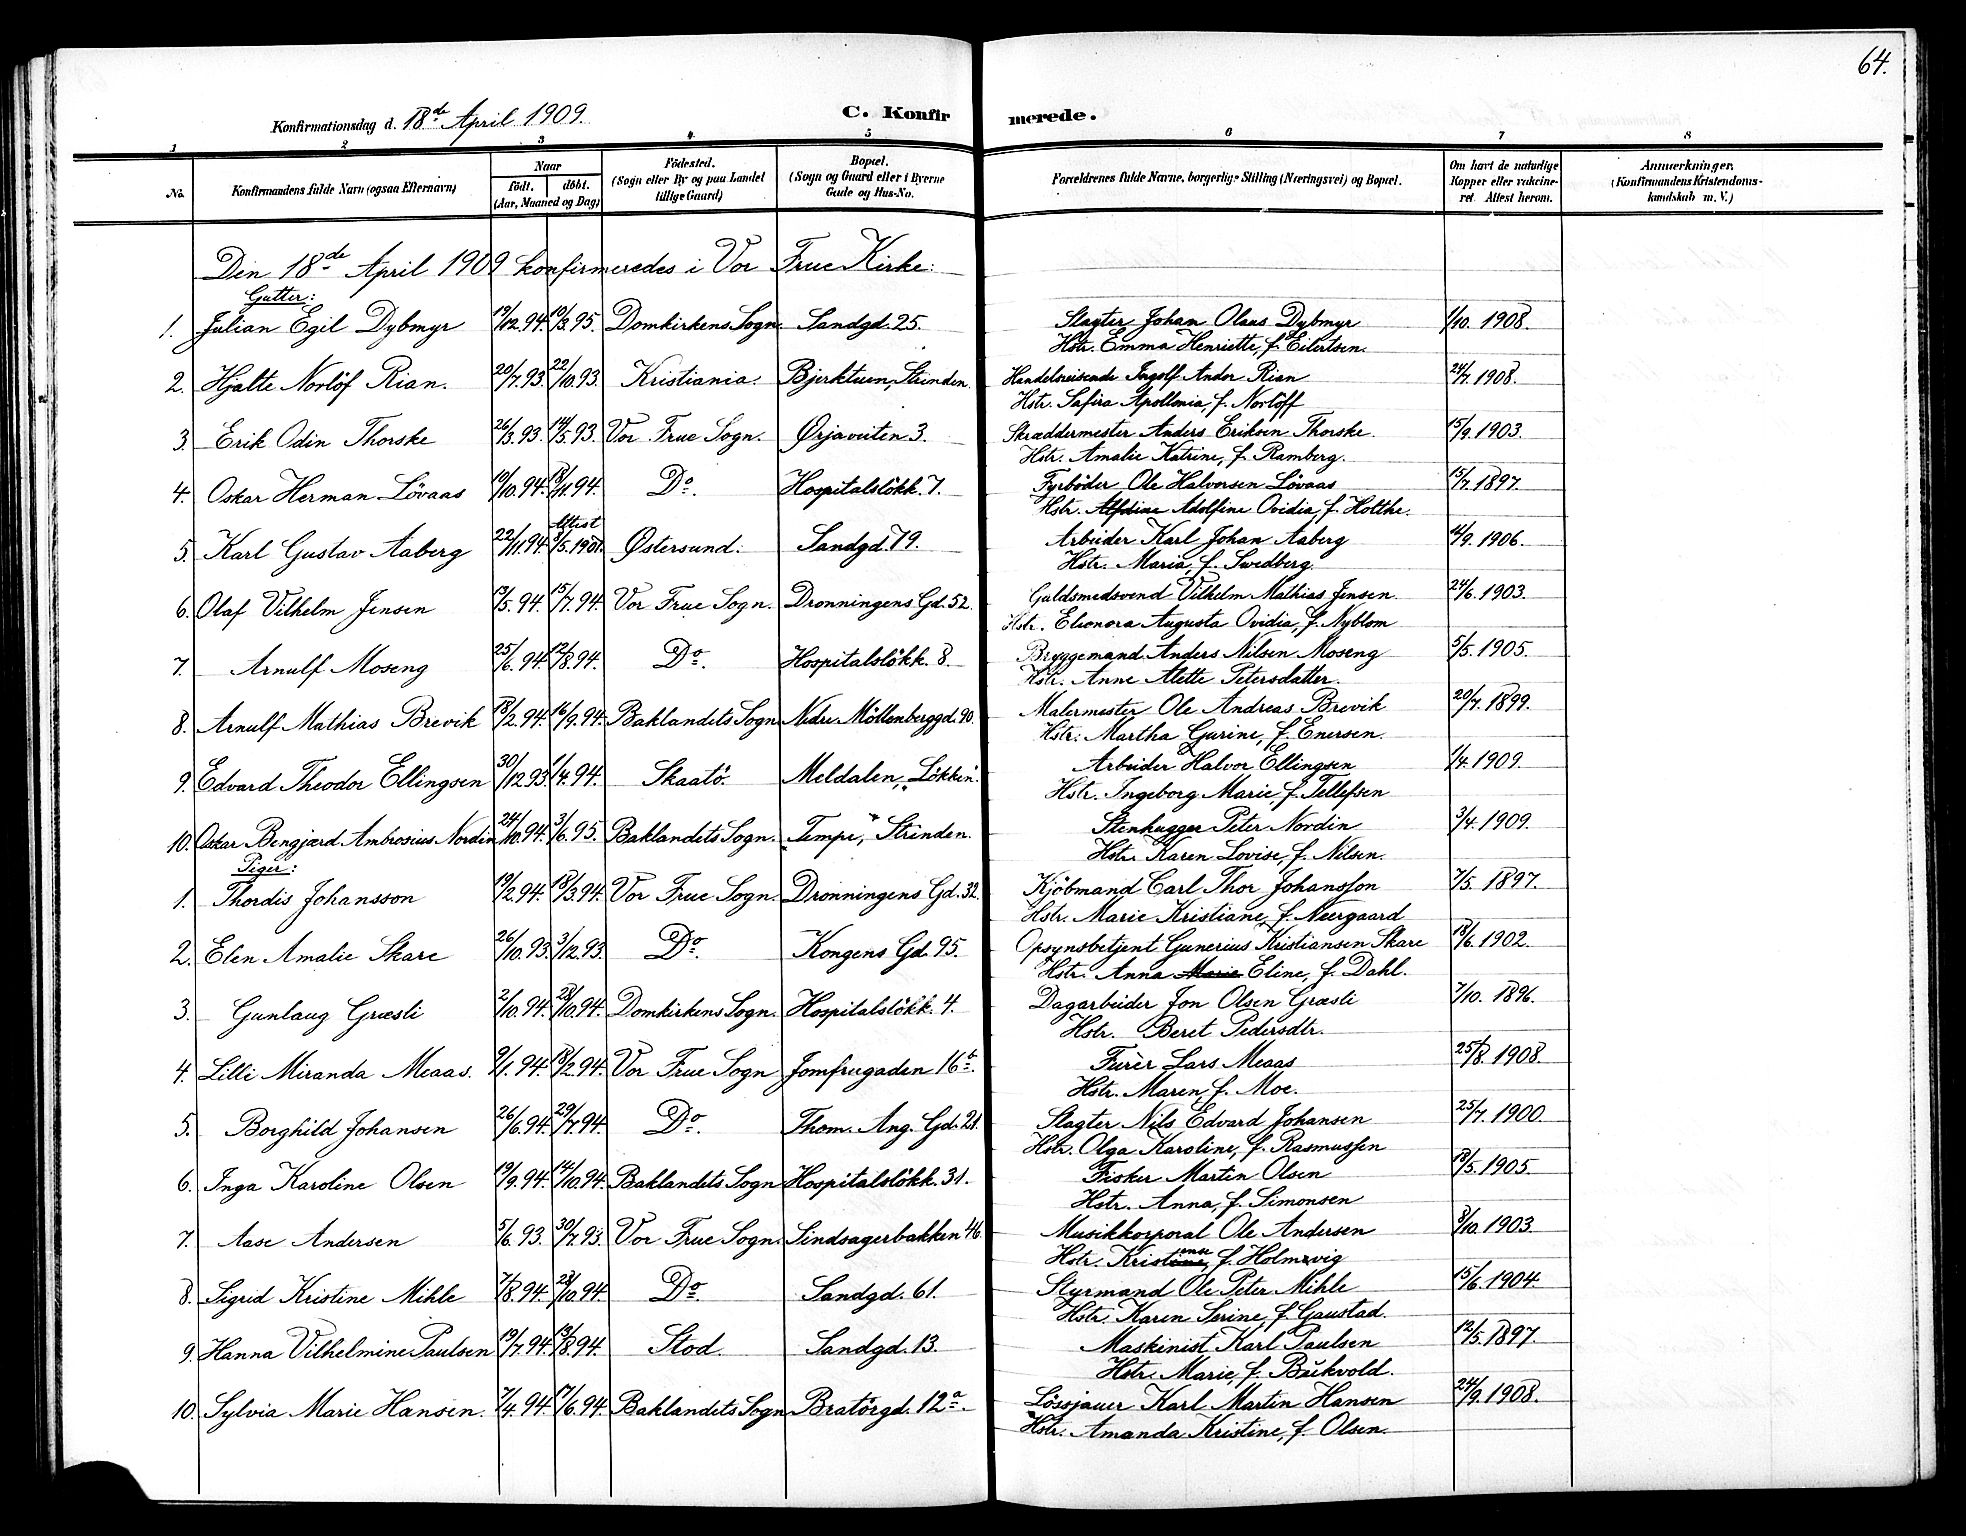 64.
Konfirmationsdag d. 18de April 1909.
C. Konfirmerede.
1 2 3 4 5 6 7 8
No. Konfirmandens fulde Navn (ogsaa Efternavn) Naar født. døbt. (Aar, Maaned og Dag) Fødested. (Sogn eller By og paa Landet tillige Gaard) Bopæl. (Sogn og Gaard eller i Byerne Gade og Hus-No. Forældrenes fulde Navne, borgerlige Stilling (Næringsvei) og Bopæl. Om havt de naturlige Kopper eller vakcineret. Attest herom. Anmærkninger. (Konfirmandens Kristendomskundskab m. V.)
Den 18de April 1909 konfirmeredes i Vor Frue Kirke:
Gutter:
1. Julian Egil Dybmyr 19/12.94. 10/3.95. Domkirkens Sogn. Sandgd. 25. Slagter Johan Olaus Dybmyr 1/10. 1908.
Hstr. Emma Henriette, f. Eilertsen.
2. Hjalte Norløf Rian. 20/7.93. 22/10.93. Kristiania. Bjerktuen, Strinden. Handelsreisende Ingolf Andor Rian 24/7. 1908.
Hstr. Safira Apollonia, f. Norløff
3. Erik Odin Thorske 26/3.93. 14/5.93. Vor Frue Sogn. Ørjaveiten 3. Skræddermester Anders Eriksen Thorske. 15/9. 1903.
Hstr. Amalie Katrine, f. Ramberg.
4. Oskar Herman Løvaas 19/10.94. 18/11.94. Do. Hospitalsløkk. 7. Fyrbøder Ole Halvorsen Løvaas 15/7. 1897.
Hstr. Alfdine Adolfine Ovidia, f. Holthe.
5. Karl Gustav Aaberg 22/11.94. Attest 3/5.1901. Østersund. Sandgd. 79. Arbeider Karl Johan Aaberg 4/9. 1906.
Hstr. Maria, f. Svedberg.
6. Olaf Vilhelm Jensen 13/5.94. 15/7.94. Vor Frue Sogn. Dronningens Gd. 52. Guldsmedsvend Vilhelm Mathias Jensen 24/6. 1903.
Hstr. Eleonora Augusta Ovidia, f. Nyblom
7. Arnulf Moseng 25/6.94. 12/8.94. Do. Hospitalsløkk. 8 Bryggemand Anders Nilsen Moseng 5/5. 1905.
Hstr. Anne Alette Petersdatter.
8. Arnulf Mathias Brevik 18/2.94. 16/9.94. Baklandets Sogn Nedre Møllenberggd. 90. Malermester Ole Andreas Brevik 20/7. 1899.
Hstr. Martha Gurine, f. Enersen.
9. Edvard Theodor Ellingsen 30/12.93. 1/4.94. Skaatø. Meldalen, "Løkken". Arbeider Halvor Ellingsen 1/4. 1909.
Hstr. Ingeborg Marie, f. Tellefsen
10. Oskar Bengjærd Ambrosius Nordin 24/10.94. 3/6.95. Baklandets Sogn. Tempe, Strinden. Stenhugger Peter Nordin 3/4. 1909.
Hstr. Karen Lovise, f. Nilsen.
Piger:
1. Thordis Johansson 19/2.94. 18/3.94. Vor Frue Sogn. Dronningens Gd. 32. Kjøbmand Carl Thor Johansson 7/5. 1897.
Hstr. Marie Kristiane, f. Neergaard
2. Elen Amalie Skare 26/10.93. 3/12.93. Do. Kongens Gd. 95. Opsynsbetjent Gunerius Kristiansen Skare 18/6. 1902.
Hstr. Anna Marie Eline, f. Dahl.
3. Gunlaug Græsli 2/10.94. 28/10.94. Domkirkens Sogn. Hospitalsløkk. 4. Dagarbeider Jon Olsen Græsli 7/10. 1896.
Hstr. Beret Pedersdtr.
4. Lilli Miranda Meaas. 9/1.94. 18/2.94. Vor Frue Sogn Jomfrugaden 16b. Furèr Lars Meaas 25/8. 1908.
Hstr. Maren, f. Moe.
5. Borghild Johansen 26/6.94. 29/7.94 Do. Thom. Ang. Gd. 21. Slagter Nils Edvard Johansen 25/7. 1900.
Hstr. Olga Karoline, f. Rasmussen
6. Inga Karoline Olsen 19/9.94. 14/10.94. Baklandets Sogn Hospitalsløkk. 31. Fisker Martin Olsen 18/5. 1905.
Hstr. Anna, f. Simonsen
7. Aase Andersen 5/6.93. 30/7.93. Vor Frue Sogn. Sindsagerbakken 46. Musikkorporal Ole Andersen 8/10. 1903.
Hstr. Kristine, f. Holmsvig
8. Sigrid Kristine Mihle 7/8.94. 28/10.94. Do. Sandgd. 61. Styrmand Ole Peter Mihle 15/6. 1904.
Hstr. Karen Serine, f. Gaustad.
9. Hanna Vilhelmine Paulsen 19/7.94. 13/8.94. Stod. Sandgd. 13. Maskinist Karl Paulsen 12/5. 1897.
Hstr. Marie, f. Bukvold.
10. Sylvia Marie Hansen. 7/4.94. 17/6.94. Baklandets Sogn Bratørgd. 12a. Løssjauer Karl Martin Hansen 24/9. 1908.
Hstr. Amanda Kristine, f. Olsen.